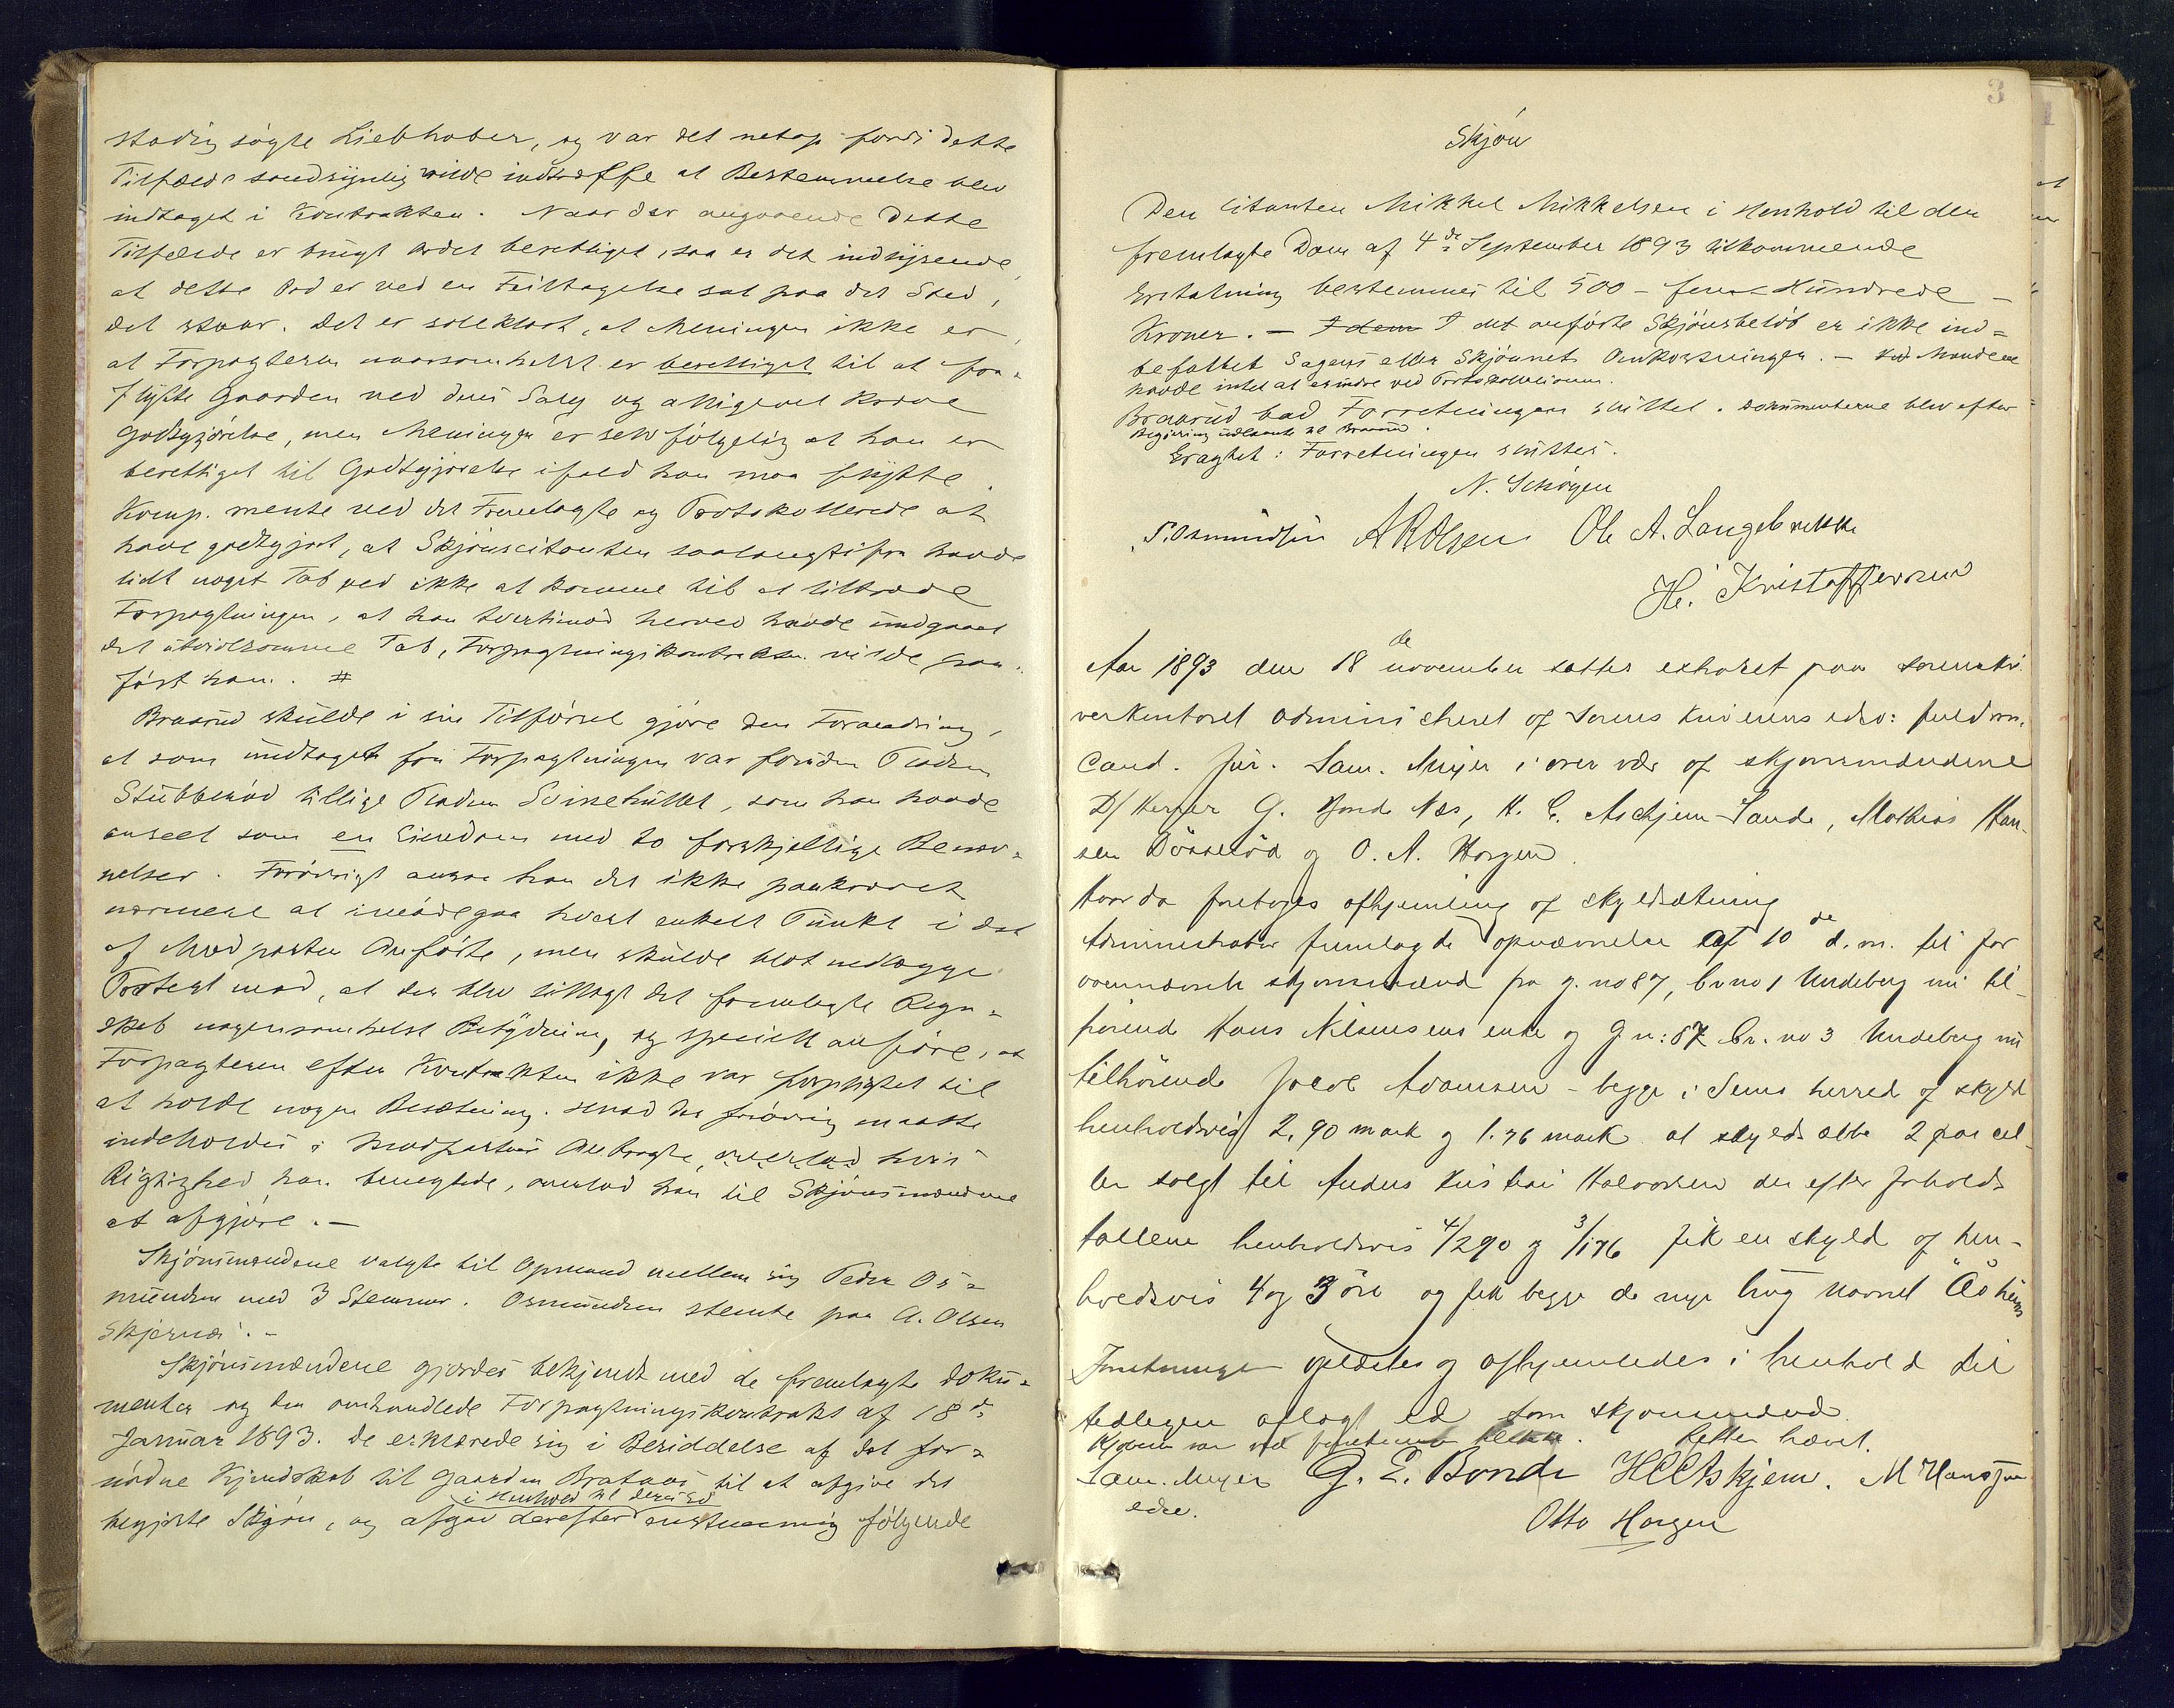 stadig søgte Liebhaber, og var det netop fordi dette
Tilfælde sandsynlig vilde indtræffe at Bestemmelse blev
indtaget i Kontrakten. Naar der angaaende dette
Tilfælde er brugt ordet berettiget, saa er det indlysende,
at dette Ord er ved en Feiltagelse sat paa det Sted,
det staar. Det er soleklart, at Meningen ikke er,
at Forpagteren naarsomhelst er berettiget til at fra-
flytte Gaarden ved dens Salg og alligevel kræve
Godtgjørelse, men Meningen er selvfølgelig at han er
berettiget til Godtgjørelse ifald han maa flytte.
Komp. mente ved det Fremlagte og Protokollerede at
have godtgjort, at Skjønscitanten saalangtifra havde
lidt noget Tab ved ikke at komme til at tiltræde
Forpagtningen, at han tvertimod herved havde undgaaet
det utvivlsomme Tab, Forpagtningskontrakten vilde paa-
ført ham. #
Braarud skulde i sin Tilførsel gjøre den Forandring,
at som undtaget fra Forpagtningen var foruden Pladsen
Stubberød tillige Pladsen Svinehullet, som han havde
anseet som en Eiendom med to forskjellige Benæv-
nelser. Forøvrigt ansaa han det ikke paakrævet
nærmere at imødegaa hvert enkelt Punkt i det
af Modparten Anførte, men skulde blot nedlægge
Protest mod, at der blev tillagt det fremlagte Regn-
skab nogensomhelst Betydning, og specielt anføre, at
Forpagteren efter Kontrakten ikke var forpligtet til
at holde nogen Besætning. Hvad der forøvrig maatte
indeholdes i Modpartens Anbragte, hvis
Rigtighed han benegtede, overlod han til Skjønsmændene
at afgjøre. —
Skjønsmændene valgte til Opmand mellem sig Peder Os-
mundsen med 3 Stemmer. Osmundsen stemte paa A. Olsen
Skjernæs. —
Skjønsmændene gjordes bekjendt med de fremlagte Doku-
menter og den omhandlede Forpagtningskontrakt af 18de
Januar 1893. De erklærede sig i Besiddelse af det for-
nødne Kjendskab til Gaarden Brataas til at afgive det
i Henhold til deres Ed
begjærte Skjøn, og afgav derefter enstemmig følgende
3
Skjøn
Den Citanten Mikkel Mikkelsen i Henhold til den
fremlagte Dom af 4de September 1893 tilkommende
Erstatning bestemmes til 500 – fem Hundrede –
Kroner. — I dem I det anførte Skjønsbeløb er ikke ind=
befattet Sagens eller Skjønnets Omkostninger. — Mændene
havde intet at erindre ved Protokollationen.
Braarud bad Forretningen sluttet. Dokumenterne blev efter
Begjæring udlaant til Braarud.
Eragtet: Forretningen sluttes.
N. Schøyen
P. Osmundsen A R Olsen Ole A. Langebrekke
H. Kristoffersen
Aar 1893 den 18de november sattes extraret paa sorenskri
verkontoret administreret af Sorenskriverens edsv: fuldm.
cand. jur. Sam. Meyer i overvær af skjønsmændene
D/Herrer G. Bonde Næs, H. C. Askjem Sande, Mathias Han-
sen og O. A. Horgen.
Hvor da foretoges afhjemling af skyldsætning
Administrator fremlagde opnævnelse af 10de d.m. til for
ovennævnte skjønsmænd fra g. no 87, br no 1 Undeberg nu til-
hørende Hans Nilsens enke og G n: 87 br. no 3 Undeberg nu
tilhørende Jacob Adamsen – begge i Sems herred af skyld
henholdsvis 2,90 mark og 1.76 mark at skyldsætte 2 parcel-
ler solgt til Anders Kristian Halvorsen der efter forholds
tallene henholdsvis 4/290 og 3/176 fik en skyld af hen-
holdsvis 4 og 3 øre og fik begge de nye brug navnet "Åsheim
Forretningen oplæstes og afhjemledes i henhold til
tidligere aflagt ed som skjønsmænd.
Retten hævet.
Sam. Meyer G. E. Bonde H C Askjem. M Hansen
edsv.
Otto Horgen